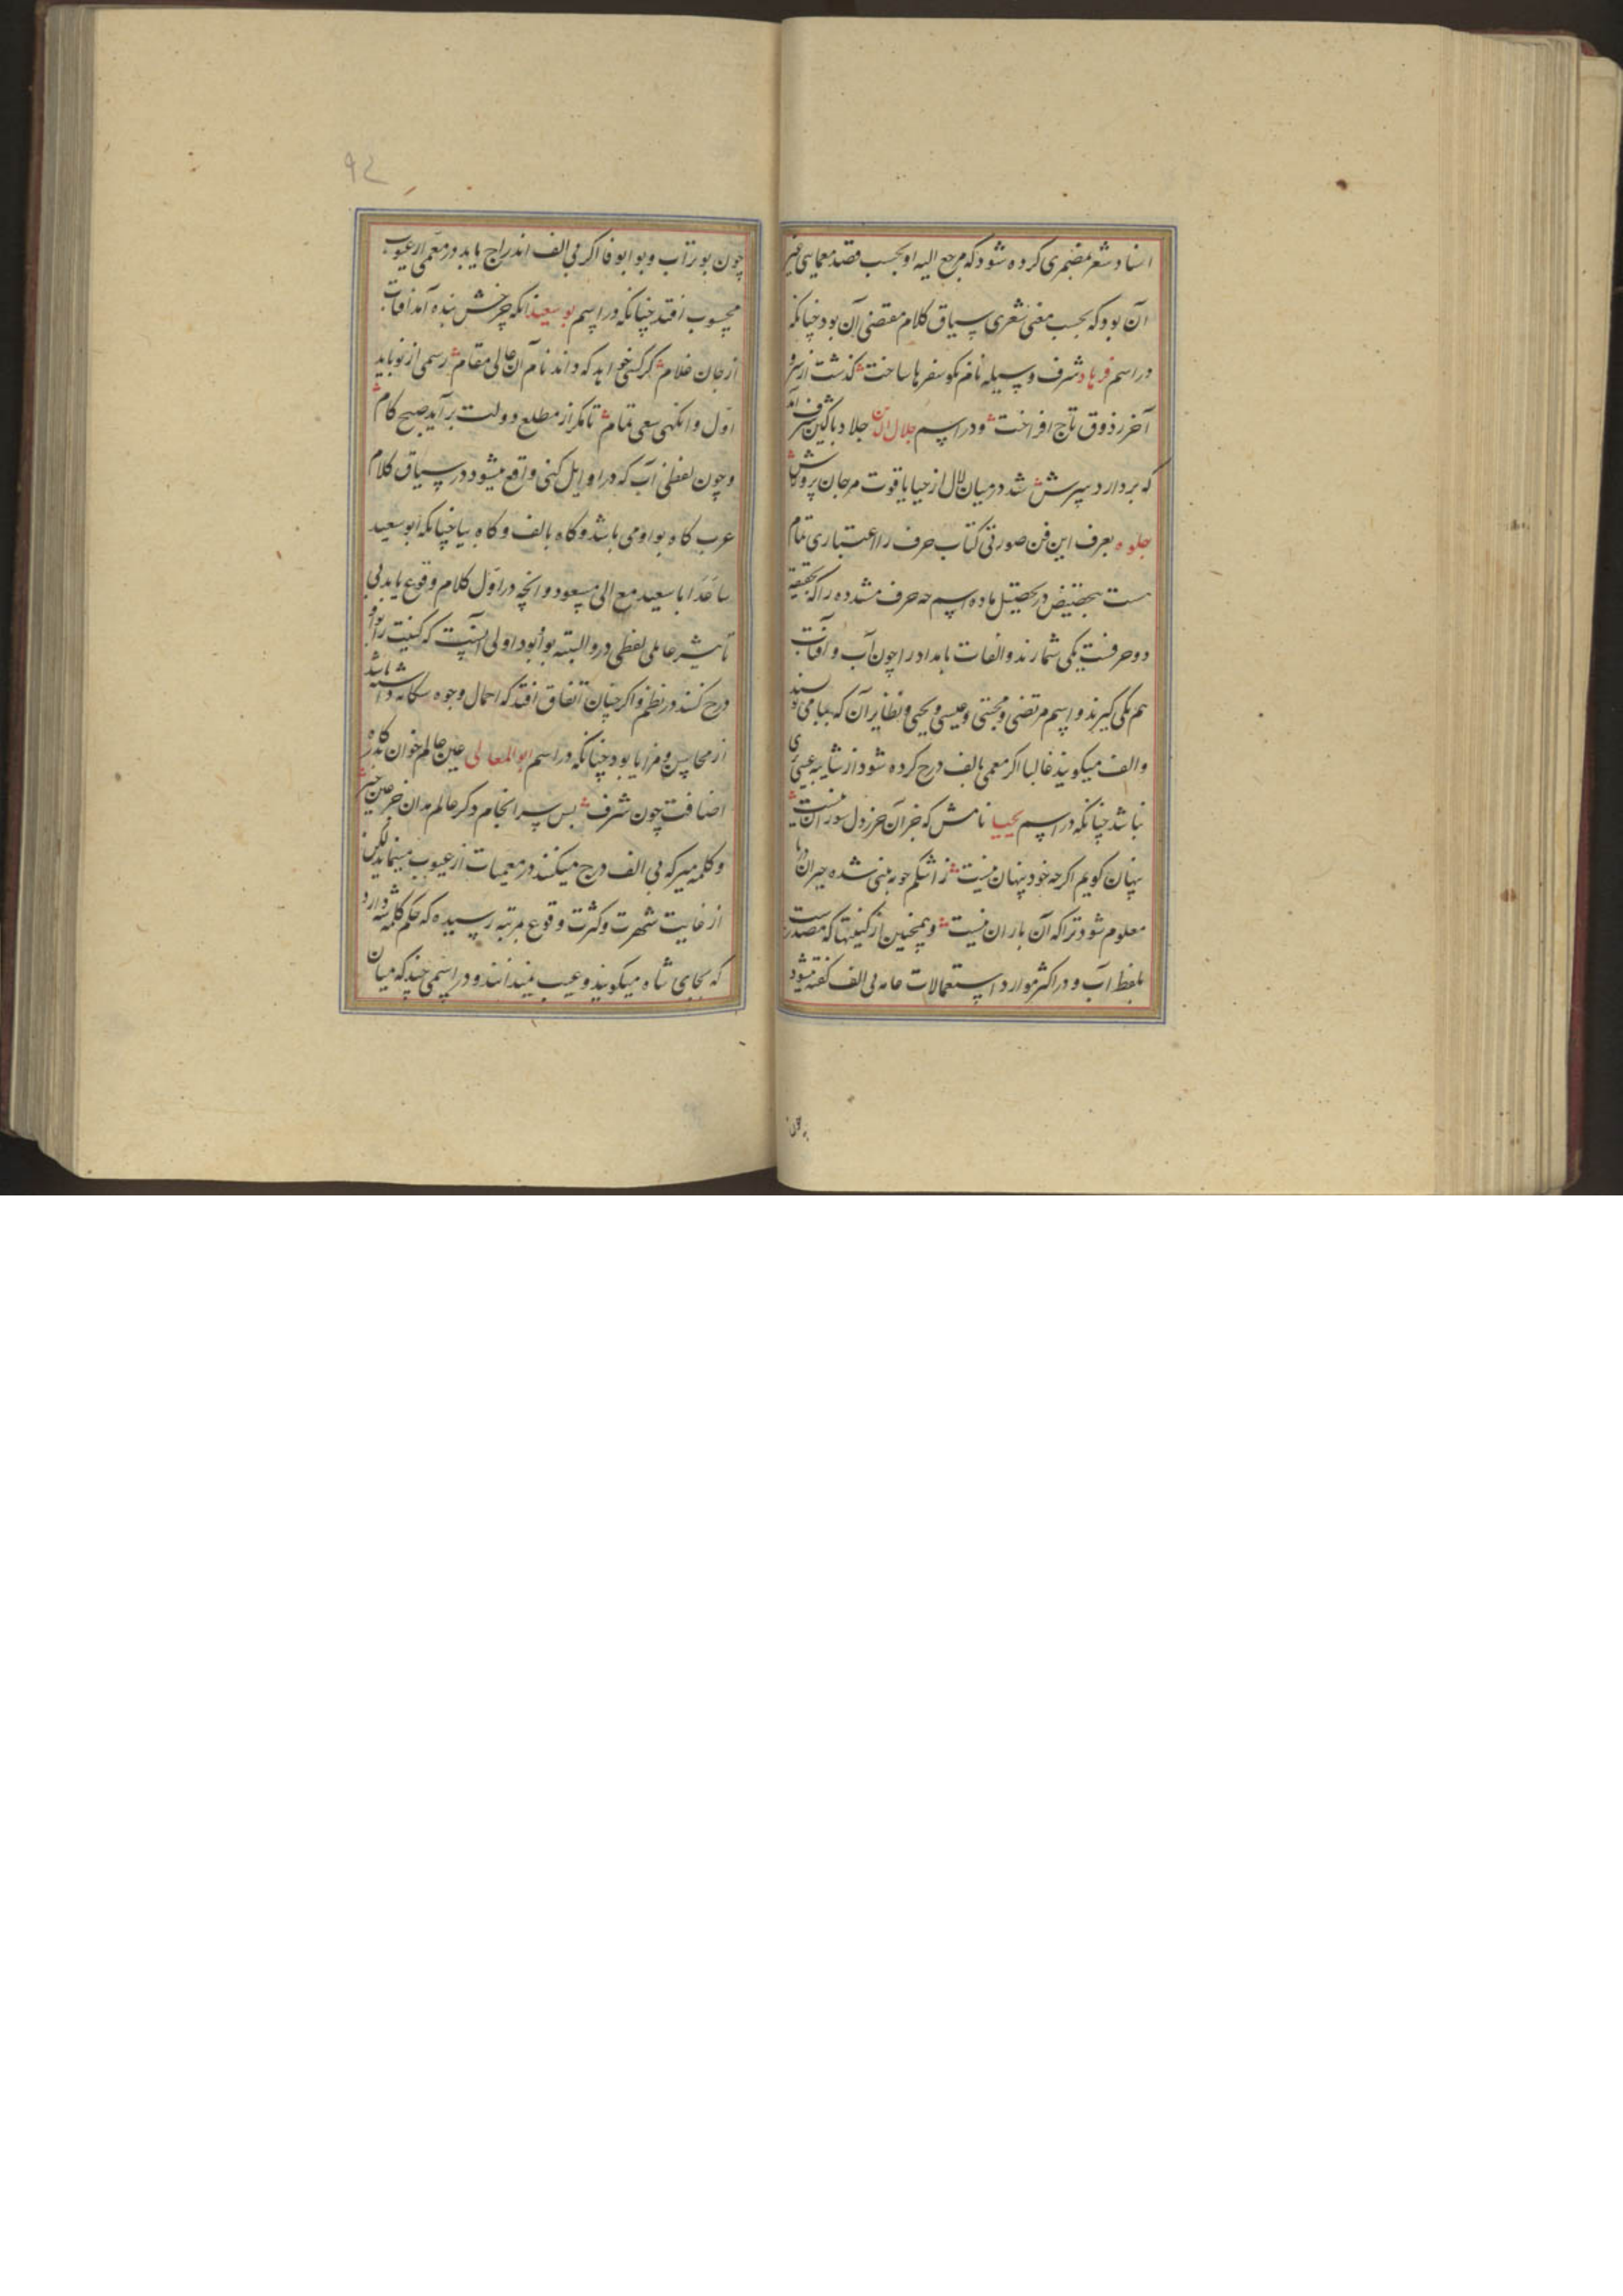 اسناد شعر بمضمری کرده شود که مرجع الیه او بحسب قصد معمایی غیر
آن بود که بحسب معنی شعری سیاق کلام مقتضی آن بود چنانکه
در اسم فرهاد شرف وسیله نام نکو سفرها ساخت گذشت از سر و
آخر ز ذوق تاج افراخت و در اسم جلال الدین جلاد باکین شرف آمد
که بردارد سرش شد در میان لال از حیا یاقوت مرجان پرورش
جلوه بعرف این فن صورتی کتاب حرف را اعتباری تمام
هست در تحصیل ماده اسم چه حرف مشدده را که بحقیقة
دو حرفست یکی شمارند و الفات بامداد را چون آب و آفتاب
هم یکی گیرند و اسم مرتضی و مجتبی و عیسی و یحیی و نظایر آن که بیا می نویسند
و الف میگویند غالبا اگر معمی بالف درج کرده شود از شایبه عیبی
نباشد چنانکه در اسم یحیی نامش که جز آن حرز دل سوزان نیست
پنهان گویم اگر چه خود پنهان نیست ز اشکم چو به بینی شده حیران
معلوم شود ترا که آن باران نیست و همچنین از کنیتها که مصدرست
بلفظ اب و در اکثر موارد استعمالات عامه بی الف گفته میشود
چون
٩٢
چون بوتراب و بو ابوفا اگر بی الف اندراج یابد در معمی از عیوب
محسوب افتد چنانکه در اسم بو سعید آنکه چرخش بنده آمد آفتاب
از جان غلام گر کسی خواهد که داند نام آن عالی مقام رسمی از نو باید
اول وانگهی سعی تمام تا مگر از مطلع دولت برآید صبح کام
و چون لفظ اب که در اوایل کنی واقع میشود در سیاق کلام
عرب گاه بواو می باشد و گاه بالف و گاه بیا چنانکه ابو سعید
ابا سعید مع الی مسعود و آنچه در اول کلام وقوع یابد بی
تأثیر عاملی لفظی درو البته بو ابو بود اولی آنست که کنیت را بواو
درج کنند در نظم و اگر چنان اتفاق افتد که احتمال وجوه سه‌گانه داشته باشد
از محاسن و مزایا بود چنانکه در اسم ابو المعالی عین عالم خوان که در
اضافت چون شرف بس سرانجام دگر عالم مدان جز عین
و کلمه میر که بی الف درج میکنند در معمیات از عیوب مینماید لکن
از غایت شهرت و کثرت وقوع بمرتبه رسیده که حکم کلمه شه دارد
که بجای شاه میگویند و عیب نمیدانند و در اسمی چند که میان